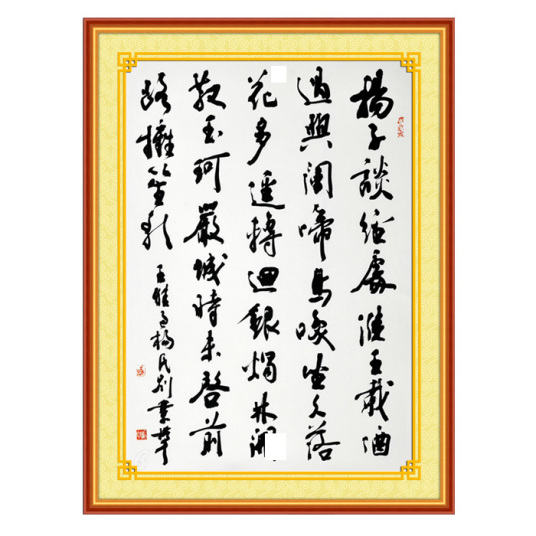 揚子談經處淮王載酒
過興闌啼鳥喚坐久落
花多逕轉迴銀燭林開
散玉珂嚴城時未啓前
路擁笙歌
王維過楊氏別業